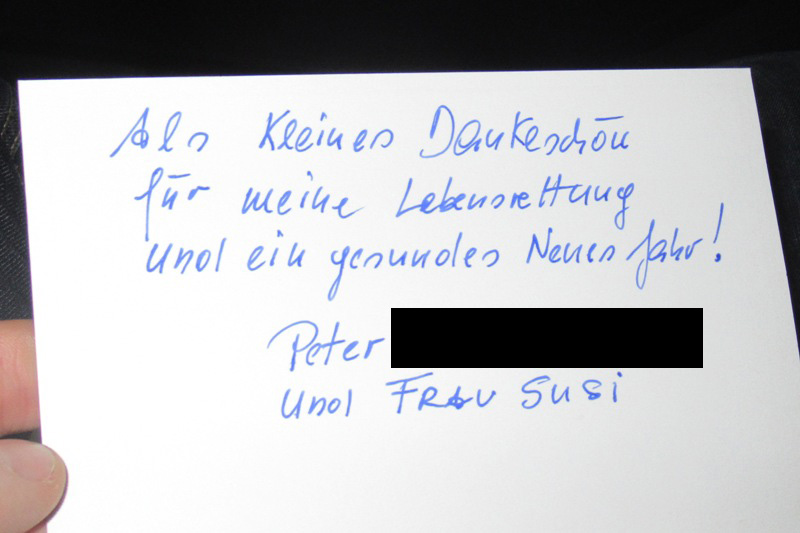 Als kleines Dankeschön
für meine Lebensrettung
und ein gesundes Neues Jahr!
Peter
und Frau Susi